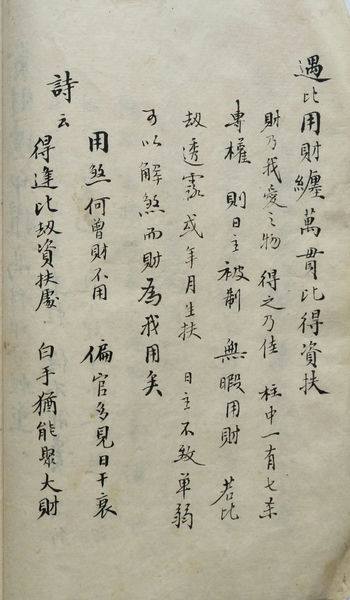 遇比用財纏萬貫比得資扶
財乃我愛之物 得之乃佳 柱中一有七杀
專權 則日主被制 無暇用財 若比
劫透露或年月生扶 日主不致单弱
可以解煞而財為我用矣
詩云
用煞何曾財不用 偏官多見日干衰
得逢比劫資扶處 白手猶能聚大財